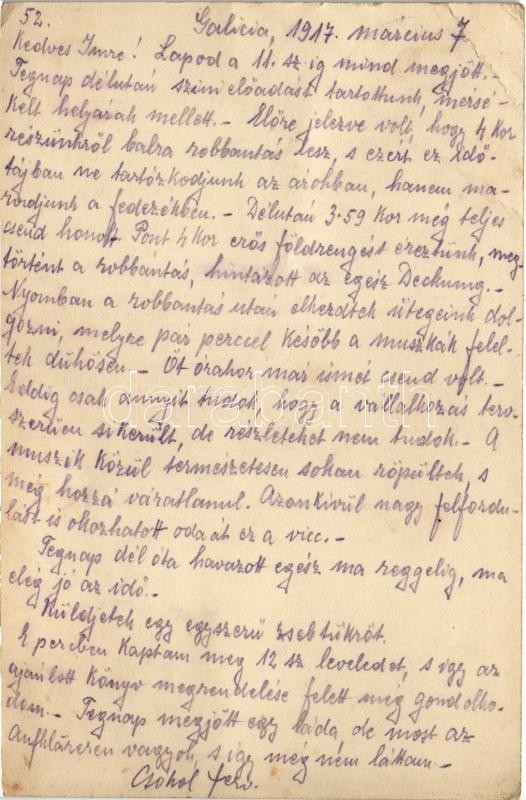 52.
Galicia, 1917. március 7
Kedves Imre! Lapod a 11. sz ig mind megjött.-
Tegnap délután szini előadást tartottunk, mérsé-
kelt helyárak mellett.- Előre jelezve volt, hogy 4 kor
részünkről balra robbantás lesz, s ezért ez idő-
tájban ne tartózkodjunk az árokban, hanem ma-
radjunk a fedezékben.- Délután 3.59 kor még teljes
csend honolt. Pont 4 kor erős földrengést éreztünk, meg-
történt a robbantás, hintázott az egész Deckung.-
Nyomban a robbantás után elkezdtek ütegeink dol-
gozni, melyre pár perccel később a muszkák felel-
tek dühösen.- Öt órakor már ismét csend volt.-
Eddig csak annyit tudok, hogy a vállalkozás terv-
szerűen sikerült, de részleteket nem tudok.- A
muszik közül természetesen sokan röpültek, s
még hozzá váratlanul. Azonkivül nagy felfordu-
lást is okozhatott odaát ez a vicc.-
Tegnap dél óta havazott egész ma reggelig, ma
elég jó az idő.-
Küldjetek egy egyszerű zsebtükröt.
E percben kaptam meg 12 sz leveledet, s igy az
ajánlott könyv megrendelése felett még gondolko-
dom.- Tegnap megjött egy láda, de most az
Aufkläreren vagyok, s igy még nem láttam.-
Csókol Ferv.
darabanth